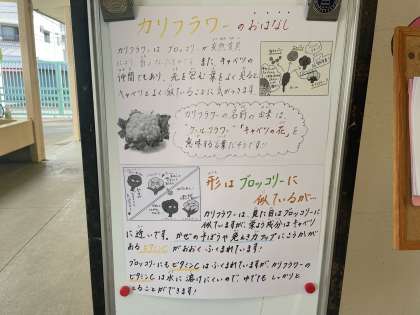 カリフラワーのおはなし
カリフラワーは ブロッコリーが 突然変異
また キャベツの
仲間でもあり、花を包む 葉をよく見ると
キャベツとよく似ていることに気がつきます
カリフラワーの名前の由来は、
"キャベツの花"を
意味する言葉だそうです
形は ブロッコリーに
似ているが…
カリフラワーは、見た目はブロッコリーに
似ていますが、栄よう成分はキャベツ
に近いです。かぜの予ぼうや めんえき力アップにこうかが
あるビタミンCが おおく ふくまれています!
ブロッコリーにもビタミンCはふくまれていますが、カリフラワーの
ビタミンCは水に溶けにくいので、ゆでても しっかりと
とることができます!